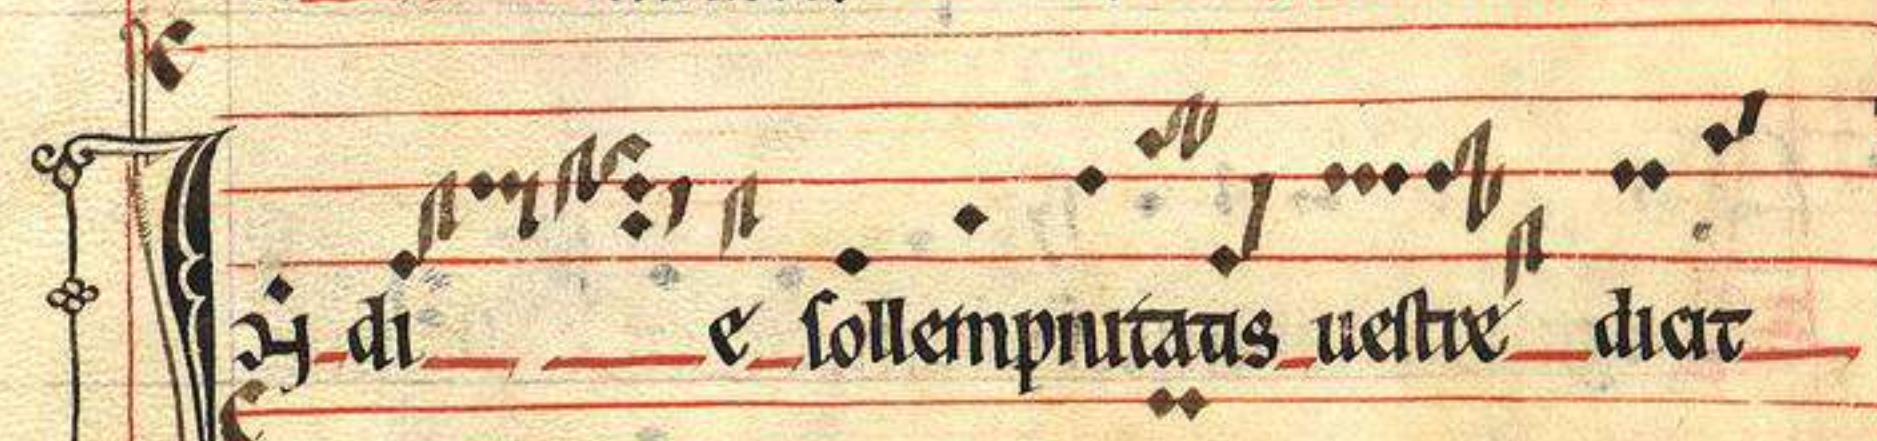 IN die sollempnitatis uestre dicit